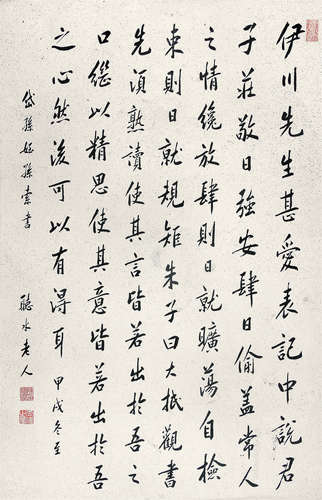 伊川先生甚愛表記中說君
子莊敬日強安肆日偷蓋常人
之情纔放肆則日就曠蕩自檢
束則日就規矩朱子曰大抵觀書
先須熟讀使其言皆若出於吾之
口繼以精思使其意皆若出於吾
之心然後可以有得耳 甲戌冬至
孫 孫 書 聽水老人